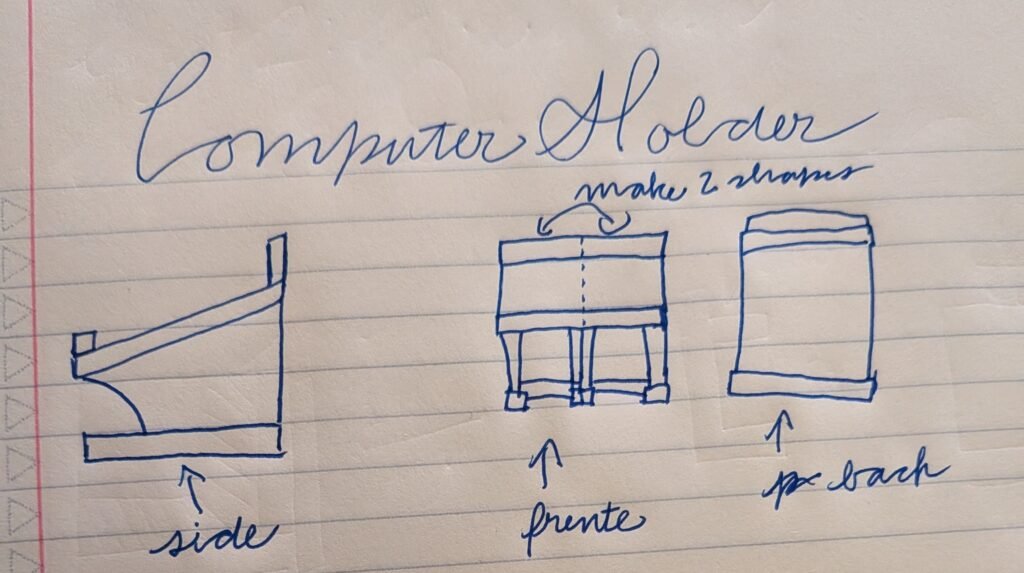 Computer Holder
make 2 shapes
side
frente
back